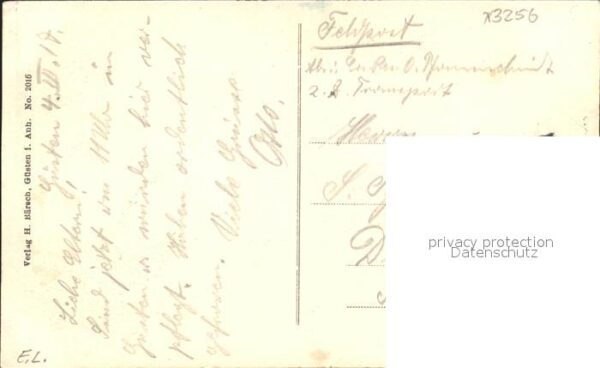 Verlag H. Bärsch, Güsten i. Anh. No. 2016
Güsten 4. III. 18.
Liebe Eltern!
Sind jetzt um 11 Uhr in
Güsten u. wurden hier ver-
pflegt. Haben ordentlich
gefroren. Viele Grüsse
Otto.
x3256
Feldpost
Abs.:
2. Transport
Herrn
S.
D
privacy protection
Datenschutz
E.L.